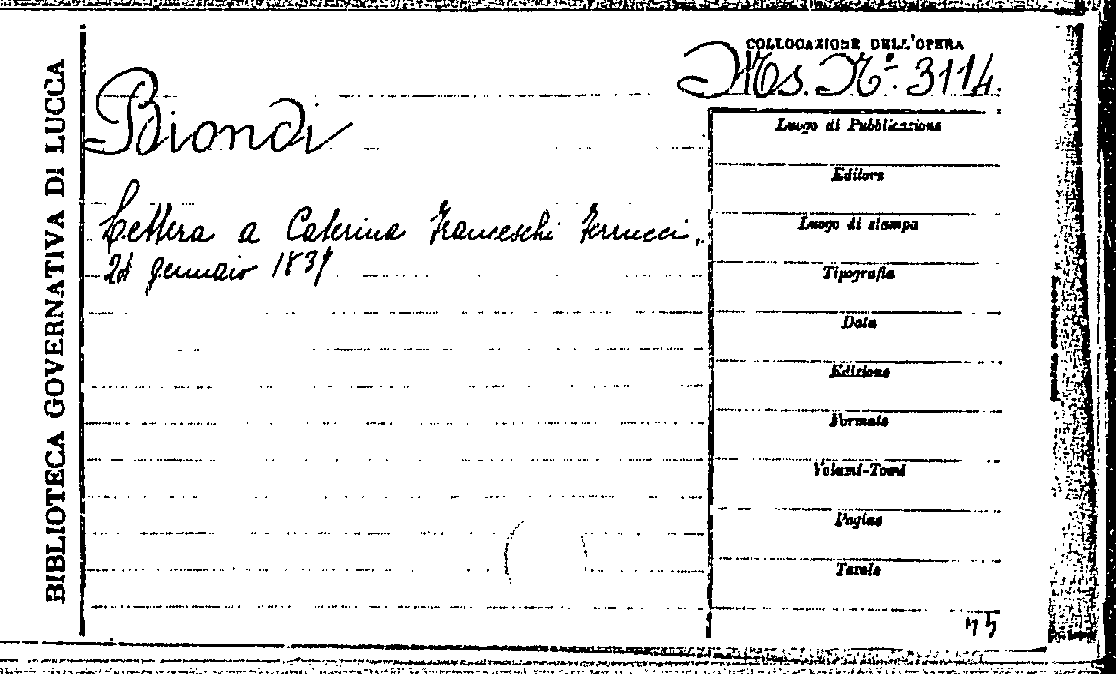 BIBLIOTECA GOVERNATIVA DI LUCCA
COLLOCAZIONE DELL'OPERA
Ms. Nº. 3114.
Biondi
Lettera a Caterina Franceschi Ferrucci,
gennaio
Luogo di Pubblicazione
Editore
Luogo di stampa
Tipografia
Data
Edizione
Formato
Volumi-Tomi
Pagine
Tavole